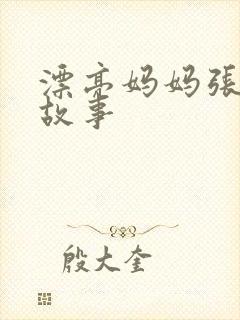 漂亮妈妈張
故事
殷大奎